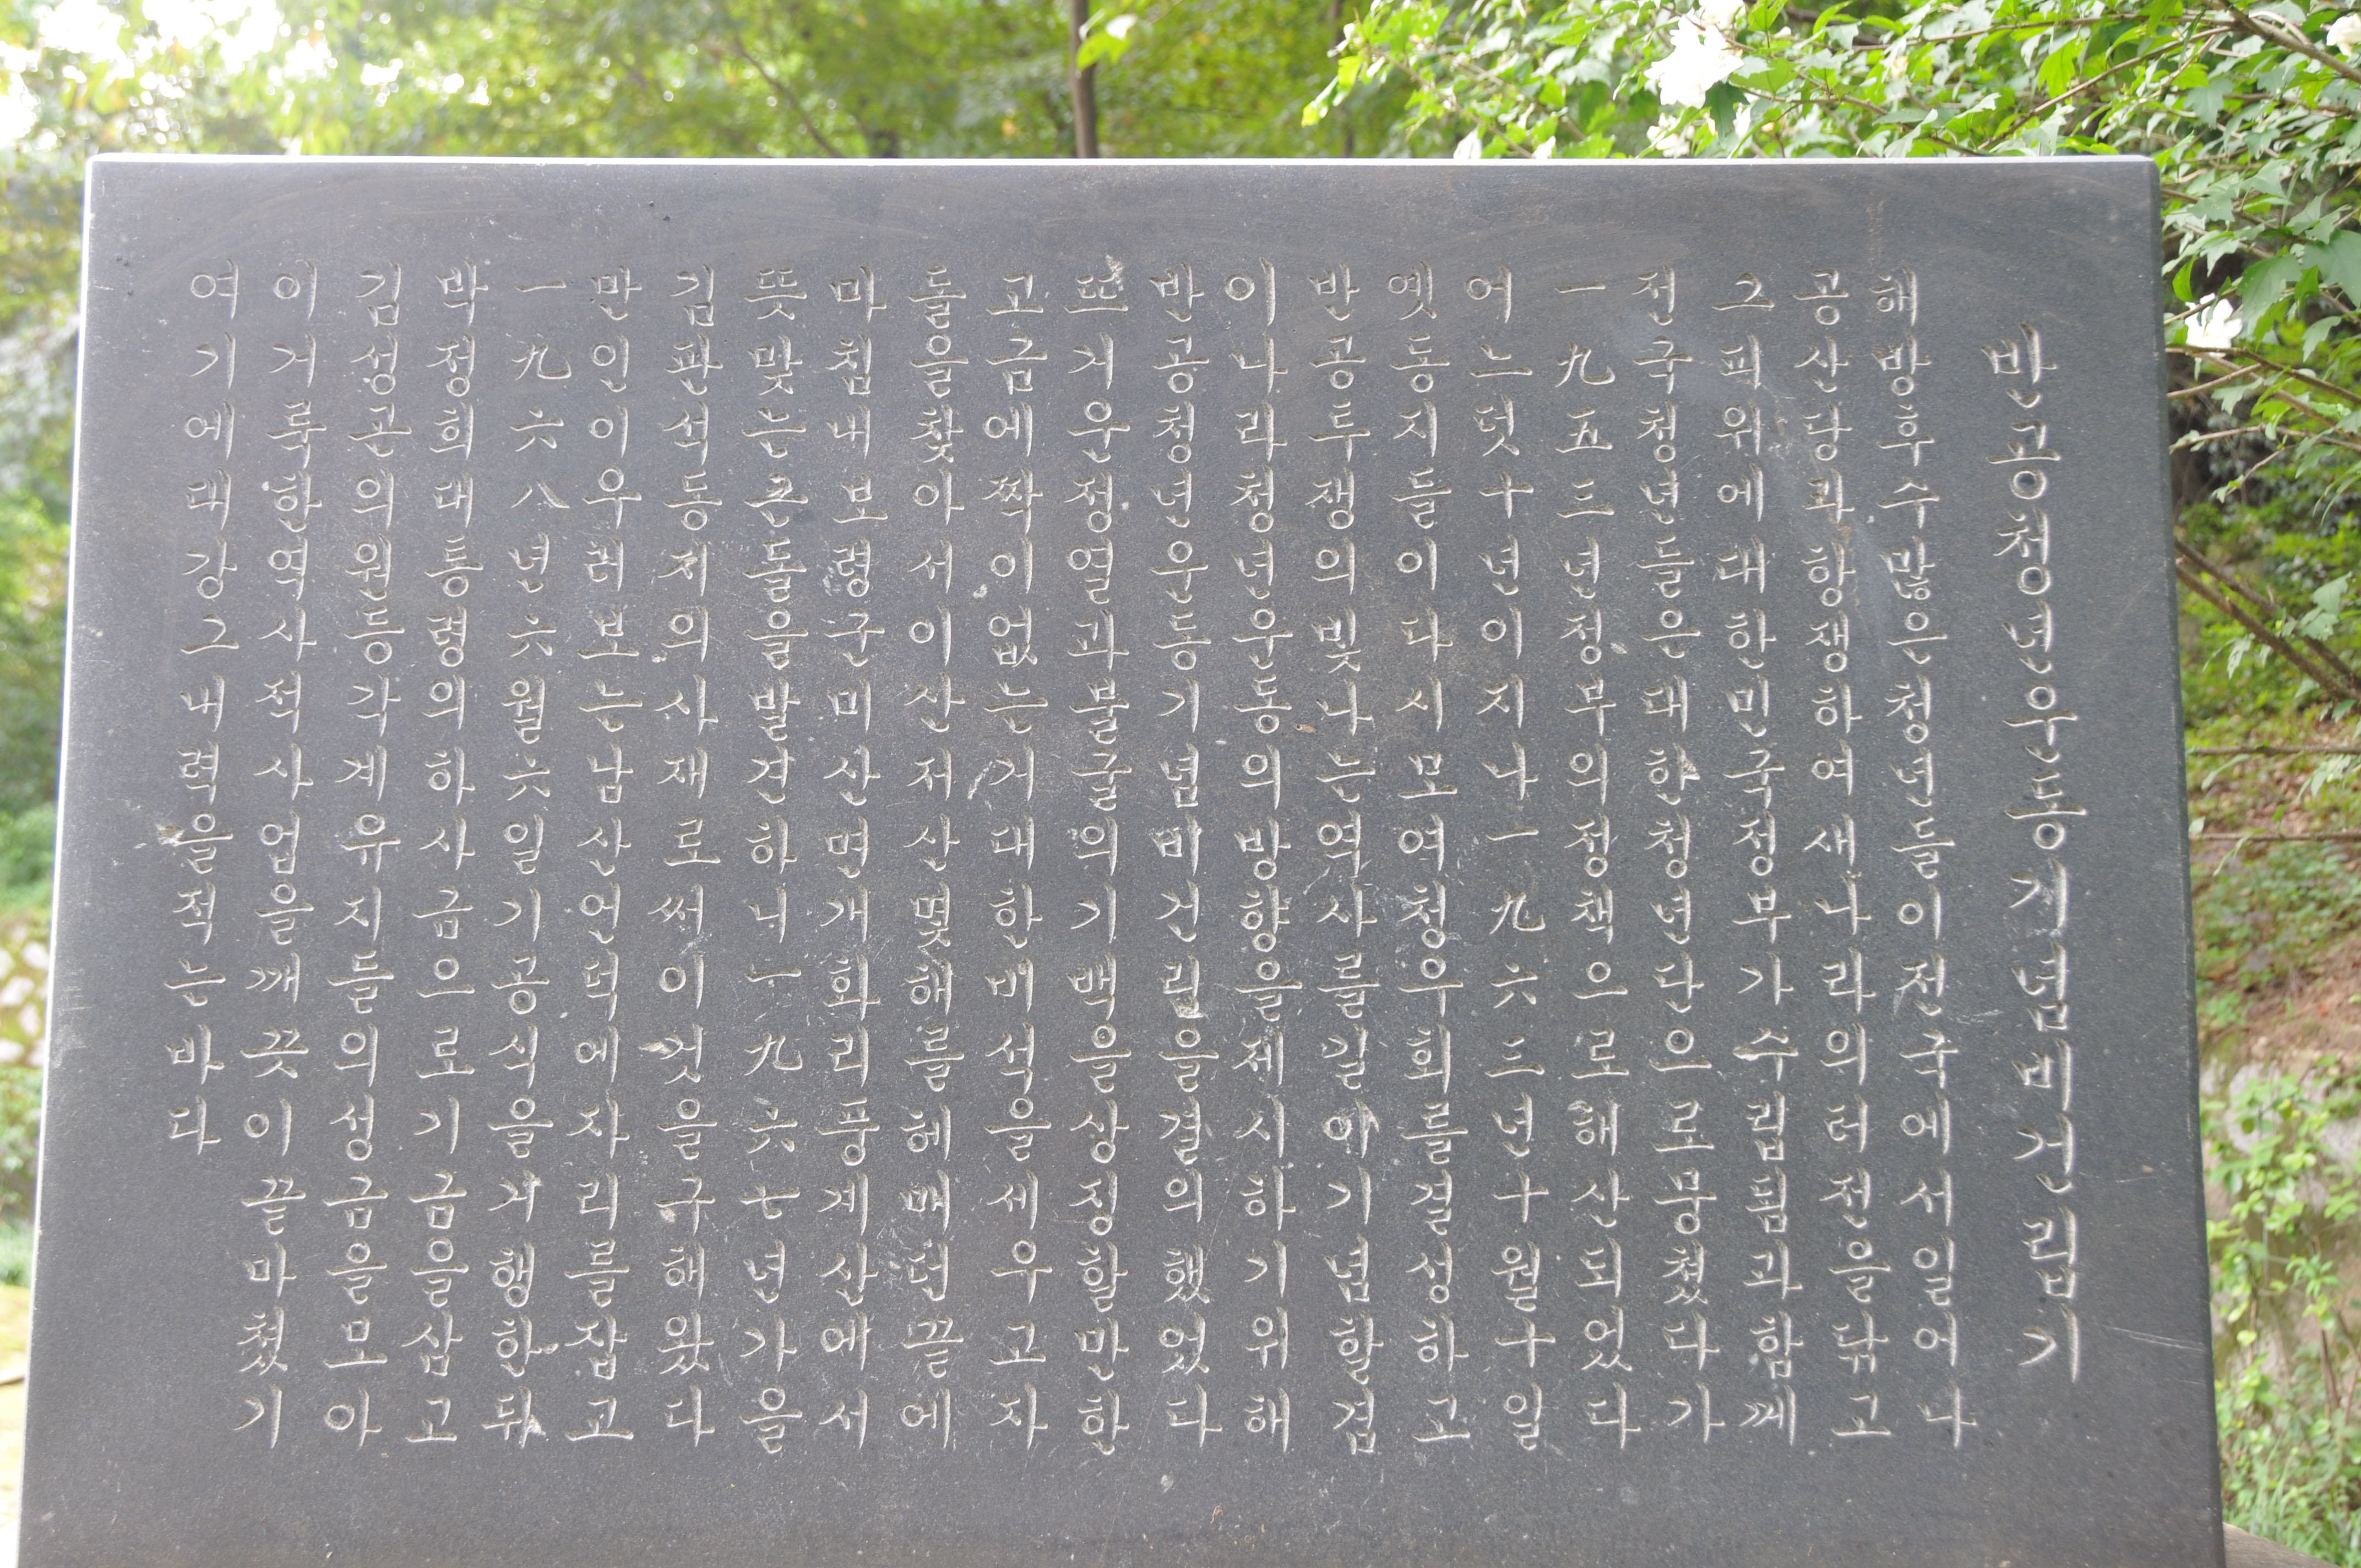 반공청년운동기념비건립기
해방후수많은청년들이전국에서일어나
공산당과항쟁하여새나라의터전을닦고
그피위에대한민국정부가수립됨과함께
전국청년들은대한청년단으로뭉쳤다가
一九五三년정부의정책으로해산되었다
어느덧十년이지나一九六三년十월十일
옛동지들이다시모여청우회를결성하고
반공투쟁의빛나는역사를길이기념할겸
이나라청년운동의방향을제시하기위해
반공청년운동기념비건립을결의했었다
뜨거운정열과불굴의기백을상징할만한
고금에짝이없는거대한비석을세우고자
돌을찾아서이산저산몇해를헤매던끝에
마침내보령군미산면개화리풍계산에서
뜻맞는큰돌을발견하니一九六七년가을
김판석동지의사재로써이것을구해왔다
만인이우러보는남산언덕에자리를잡고
一九六八년六월六일기공식을거행한뒤
박정희대통령의하사금으로기금을삼고
김성곤의원등각계유지들의성금을모아
이거룩한역사적사업을깨끗이끝마쳤기
여기에대강그내력을적는바다